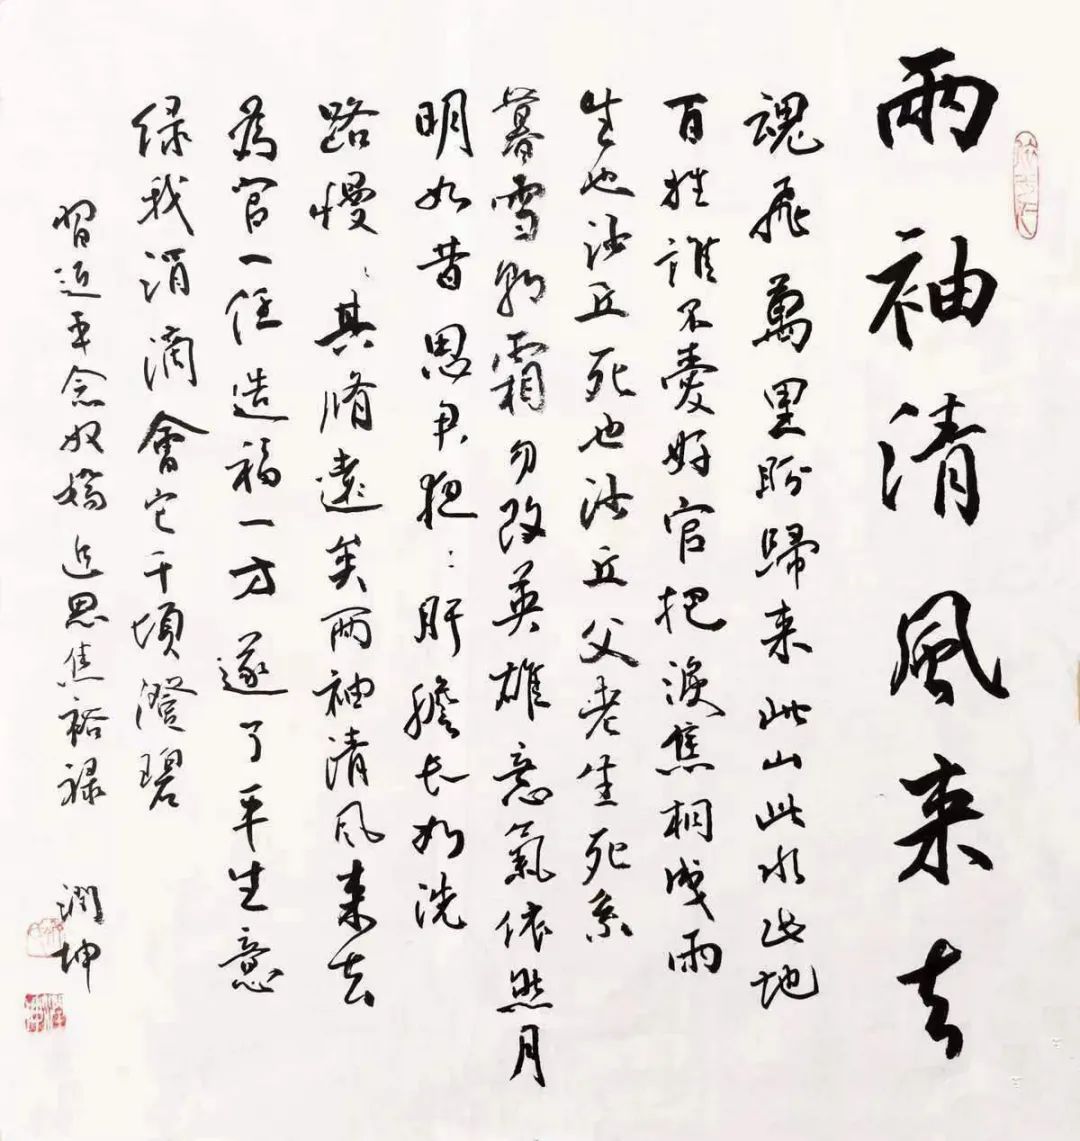 兩袖清風来去
魂飛萬里盼歸来此山此水此地
百姓誰不愛好官把淚焦桐成雨
生也沙丘死也沙丘父老生死系
暮雪朝霜勿改英雄意氣依然月
明如昔思君夜:肝膽长如洗
路慢:其脩遠矣兩袖清风来去
為官一任造福一方遂了平生意
绿我涓滴會它千頃澄碧
習近平念奴嬌追思焦裕禄
潤坤